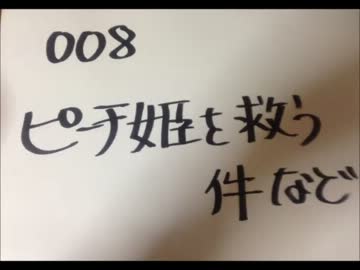 008
ピーチ姫を救う
件など